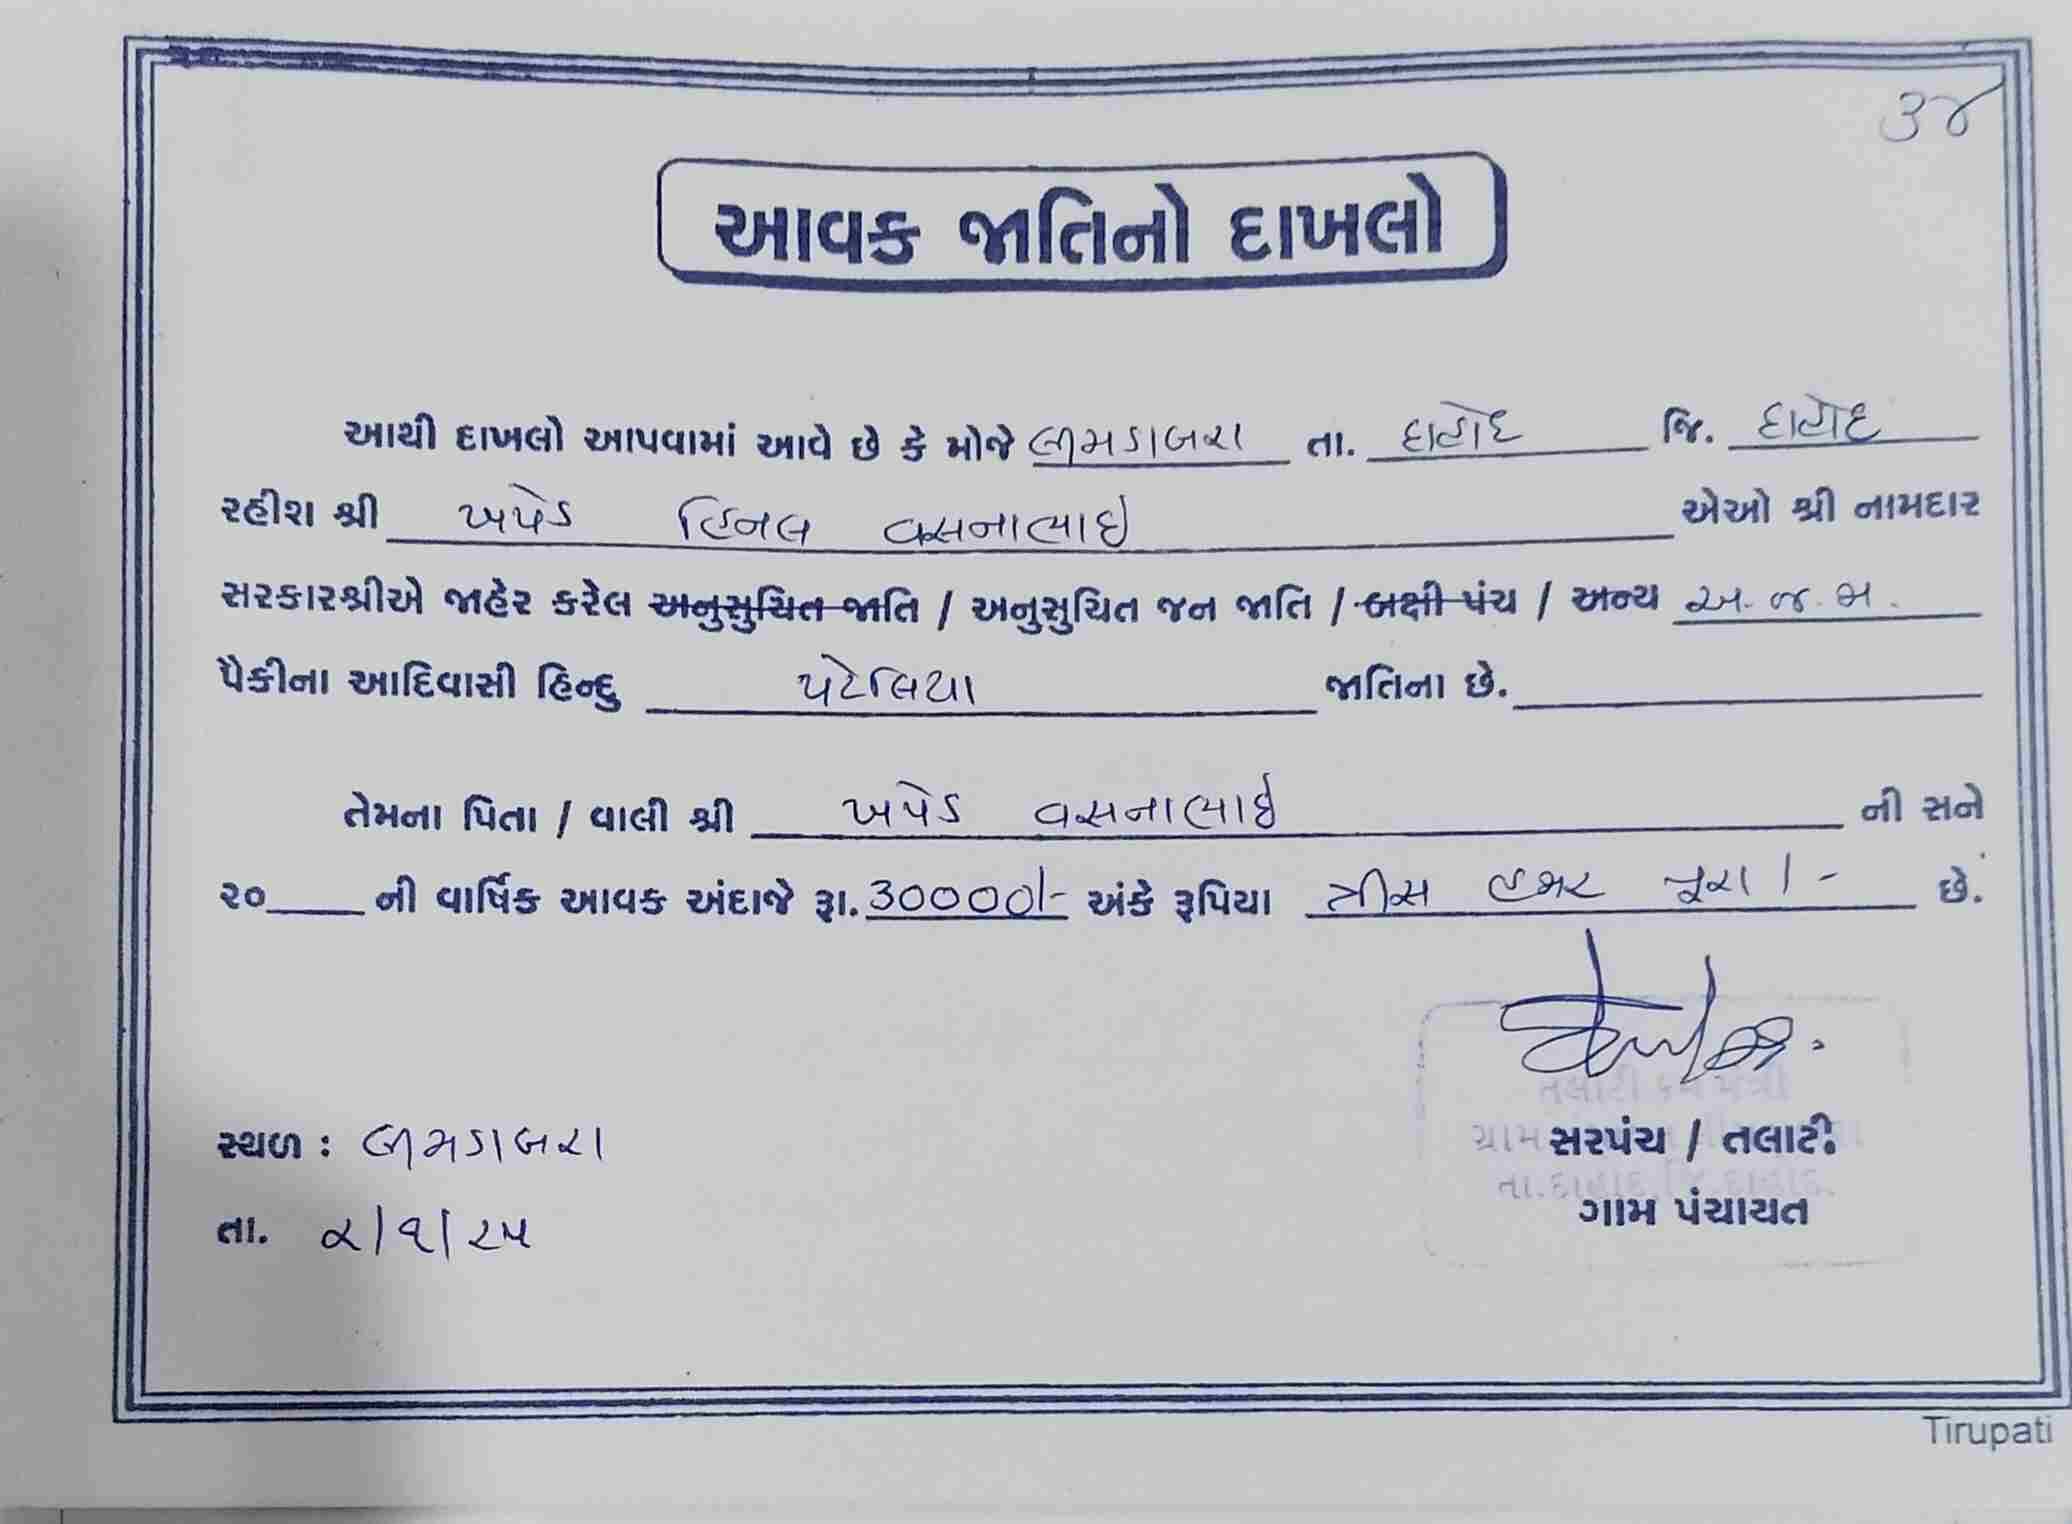 ૩૪
આવક જાતિનો દાખલો
આથી દાખલો આપવામાં આવે છે કે મોજે લીમડાબરા તા. દાહોદ જિ. દાહોદ
રહીશ શ્રી ખપેડ હિનલ વસનાભાઇ એઓ શ્રી નામદાર
સરકારશ્રીએ જાહેર કરેલ અનુસુચિત જાતિ / અનુસુચિત જન જાતિ / બક્ષી પંચ / અન્ય અ.જ.જા.
પૈકીના આદિવાસી હિન્દુ પટેલિયા જાતિના છે.
તેમના પિતા / વાલી શ્રી ખપેડ વસનાભાઇ ની સને
૨૦____ ની વાર્ષિક આવક અંદાજે રૂા. 30000/- અંકે રૂપિયા ત્રીસ હજાર પૂરા /- છે.
તલાટી કમ મંત્રી
સ્થળ : લીમડાબરા
ગ્રામ
સરપંચ / તલાટી
તા.દાહોદ,જિ.દાહોદ.
તા. ૨/૧/૨૫
ગામ પંચાયત
Tirupati